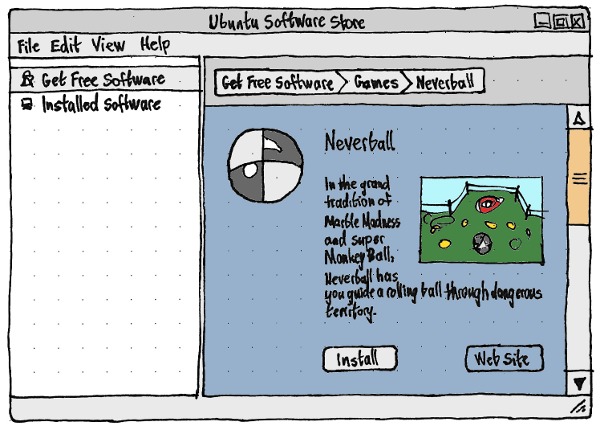 Ubuntu Software Store
File Edit View Help
Get Free Software
Installed Software
Get Free Software Games Neverball
Neverball
In the grand
tradition of
Marble Madness
and super
Monkey Ball,
Neverball has
you guide a rolling ball through dangerous
territory.
Install
Web Site